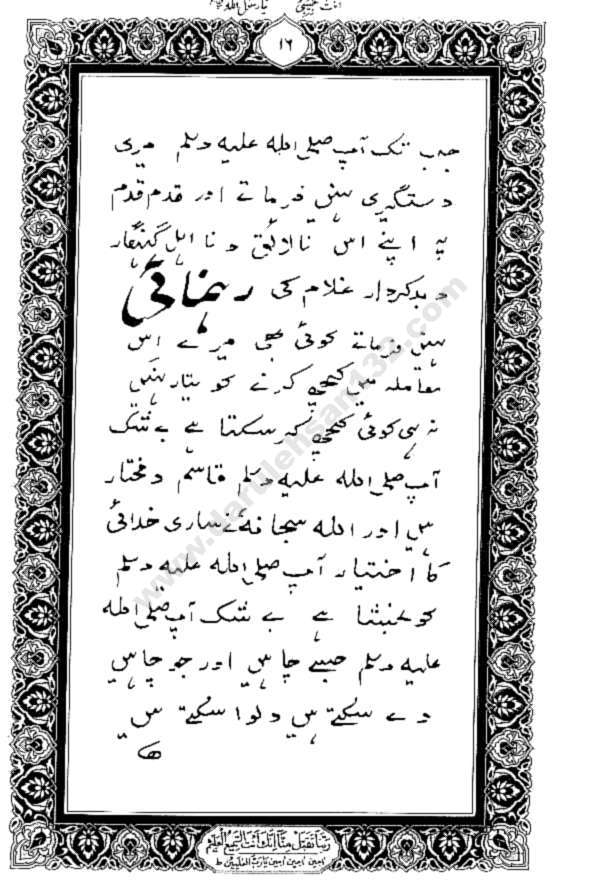 انت حبیبی یا رسول اللہ
۱۶
جب تک آپ صلی اللہ علیہ وسلم میری
دستگیری نہیں فرماتے اور قدم قدم
پہ اپنے اس نالائق و نا اہل گنہگار
و بدکردار غلام کی رہنمائی
نہیں فرماتے کوئی بھی میرے اس
معاملہ میں کچھ کرنے کو تیار نہیں
نہ ہی کوئی کچھ کر سکتا ہے بے شک
آپ صلی اللہ علیہ وسلم قاسم و مختار
ہیں اور اللہ سبحانہ نے ساری خدائی
کا اختیار آپ صلی اللہ علیہ وسلم
کو بخشا ہے بے شک آپ صلی اللہ
علیہ وسلم جسے چاہیں اور جو چاہیں
دے سکتے ہیں دلوا سکتے ہیں
www.darulehsan132.com
ربنا تقبل منا انك انت السميع العليم
امين امين امين يا رب العلمين ط